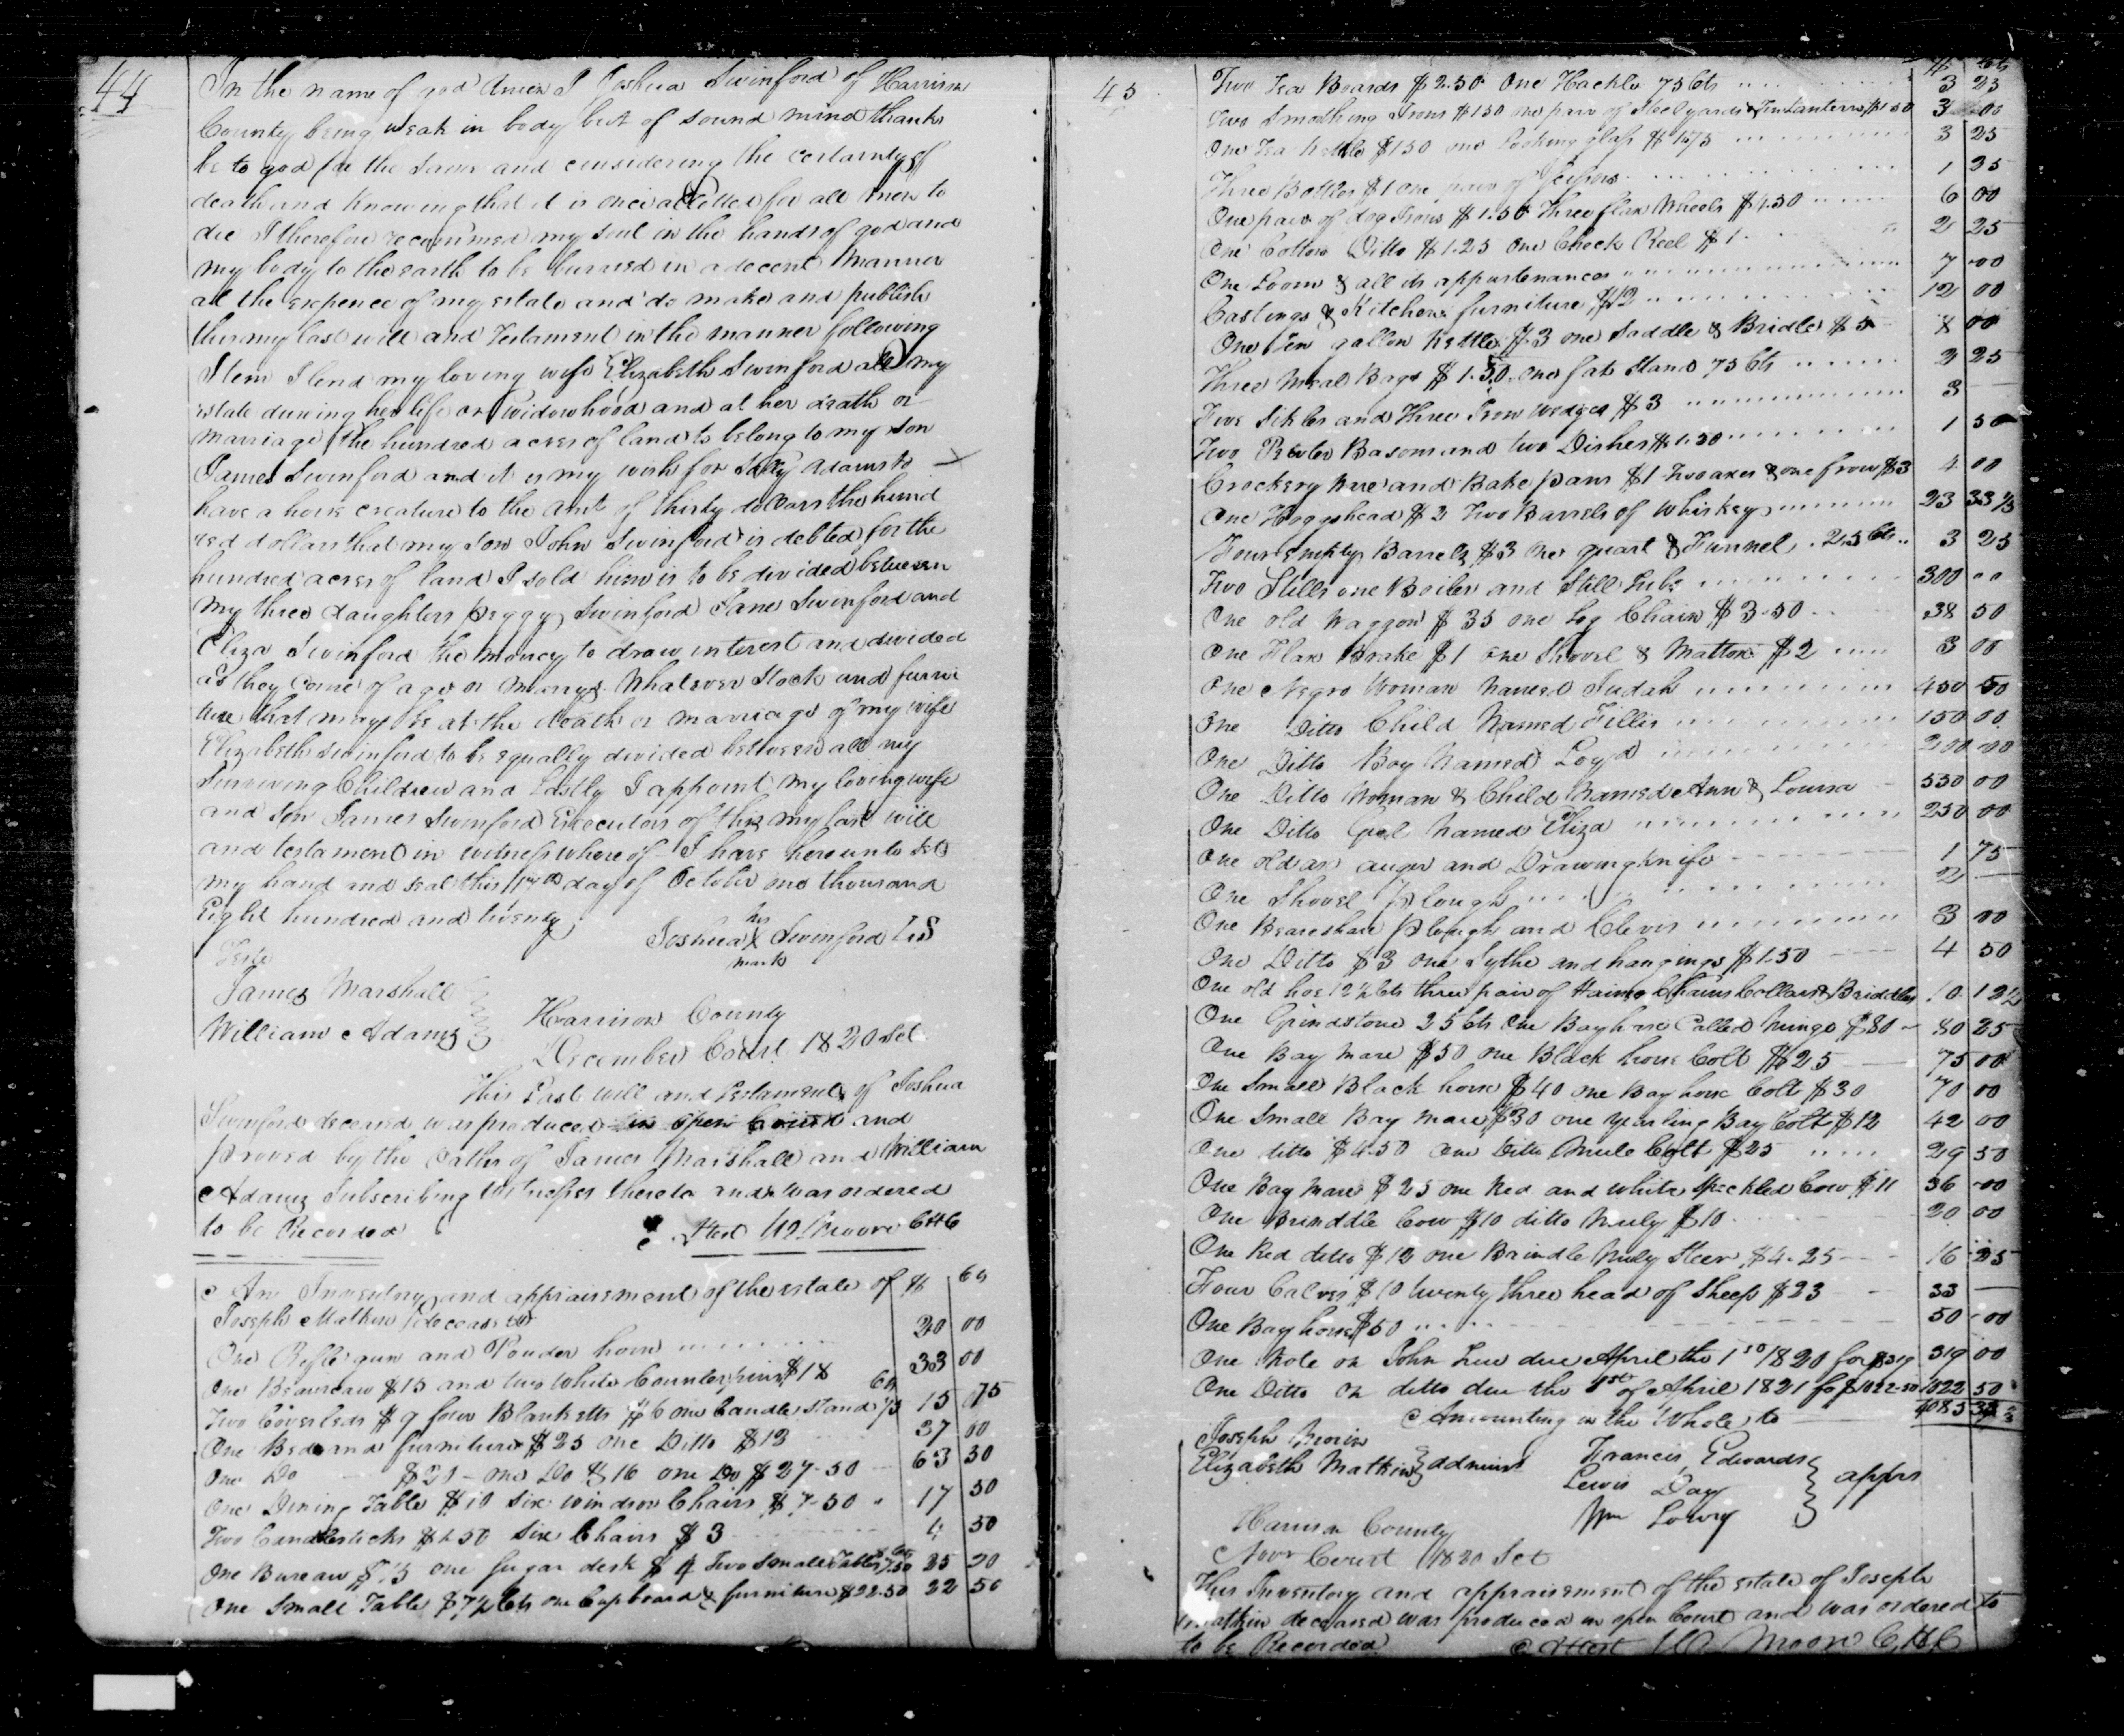 44
In the name of god Amen I Joshua Swinford of Harrison
County being weak in body but of sound mind thanks
be to god for the same and considering the certainty of
death and knowing that it is once allotted for all men to
die I therefore recommend my soul in the hands of god and
my body to the earth to be burried in a decent manner
at the expence of my estate and do make and publish
this my last will and testament in the manner following
Item I lend my loving wife Elizabeth Swinford all my
estate dureing her life or widowhood and at her death or
marriage the hundred acres of land to belong to my son
James Swinford and it is my wish for Adams to
have a horse creature to the amt of thirty dollars the hund
red dollars that my son John Swinford is debted for the
hundred acres of land I sold him is to be divided between
my three daughters Peggy Swinford Jane Swinford and
Eliza Swinford the money to draw interest and divided
as they come of age or marry Whatever Stock and furni
ture that may be at the death or marriage of my wife
Elizabeth Swinford to be equally divided between all my
surviving Children and Lastly I appoint my loving wife
and son James Swinford Executors of this my last will
and testament in witness whereof I have hereunto set
my hand and seal this day of October one thousand
Eight hundred and twenty
his
Joshua X Swinford LS
mark
Teste
James Marshall
William Adams
Harrison County
December Court 1820 Sct
This Last will and testament of Joshua
Swinford deceased was produced in open Court and
proved by the oaths of James Marshall and William
Adams Subscribing Witnesses thereto and was ordered
to be Recorded
Attest Wm Moore CHC
An Inventory and appraisement of the estate of $ Cts
Joseph Mathew deceased
One Rifle gun and Powder horn 20 00
One Beaureaw $15 and two White Counterpins $18 33 00
Two Coverleds $9 four Blanketts $6 one Candle Stand 75 Cts 15 75
One Bed and furniture $25 one Ditto $12 37 00
One Do $20 - one Do $16 one Do $27-50 63 50
One Dining Table $10 Six windsor Chairs $7-50 17 50
Two Candlesticks $1.50 Six Chairs $3 4 50
One Bureau $15 one sugar desk $4 Two Small Tables 25 20
One Small Table cts one Cupboard & furniture $22.50 22 50
45
$ Cts
Two Tea Boards $2.50 One Hackle 75 Cts 3 25
Two Smothing Irons $1.50 one pair of Steelyards & Tin Lantern $1.50 3 00
One Tea kettle $1.50 one Looking glass $1.75 3 25
Three Bottles $1 one pair of 1 25
One pair of dog Irons $1.50 Three flax Wheels $4.50 6 00
One Cotton Ditto $1.25 One Check Reel $1 2 25
One Loom & all its appurtenances 7 00
Castings & Kitchen furniture $12 12 00
One Ten gallon Kettle $3 one Saddle & Bridle $5 8 00
Three Meal Bags $1.50 one fat Stand 75 Cts 2 25
Five Sikles and Three Iron wedges $3 3
Two Pewter Basons and two Dishes $1.50 1 50
Crockery Ware and Bake pans $1 two axes & one frow $3 4 00
One Hoggshead $2 Two Barrels of Whiskey 23 33⅓
Four empty Barrels $3 one quart & Funnel .25 Cts 3 25
Two Stills one Boiler and Still Tubs 300 00
One old Waggon $35 one Log Chain $3.50 38 50
One Flax Brake $1 one Shovel & Mattox $2 3 00
One Negro Woman Named Judah 450 00
One Ditto Child Named Fillis 150 00
One Ditto Boy Named Loyd 200 00
One Ditto Woman & Child Named Ann & Louisa 550 00
One Ditto Girl Named Eliza 250 00
One old ax auger and Drawing knife 1 75
One Shovel Plough 2
One Beareshare Plough and Clevis 3 00
One Ditto $3 one Sythe and hangings $1.50 4 50
One old hoe 12½ cts three pair of Haims Chains Collars & Briddles 10 12½
One Grindstone 25 cts One Bay horse Called Mingo $80 80 25
One Bay Mare $50 one Black horse Colt $25 75 00
One Small Black horse $40 one Bay horse Colt $30 70 00
One Small Bay mare $30 one yearling Bay Colt $12 42 00
One ditto $4.50 one Ditto Mule Colt $25 29 50
One Bay Mare $25 one Red and white Speckled Cow $11 36 00
One Brinddle Cow $10 ditto Muly $10 20 00
One Red ditto $12 one Brindle Muly Steer $4.25 16 25
Four Calves $10 twenty three head of Sheep $23 33
One Bay horse $50 50 00
One Note on John due April the 1st 1820 for $319 319 00
One Ditto on ditto due the 1st of April 1821 for $1022.50 1022 50
Amounting in the Whole to 4085
Joseph
Elizabeth Mathew admirs
Francis Edwards
Lewis Day
Wm Lowry
apprs
Harrison County
Novr Court 1820 Sct
This Inventory and appraisement of the estate of Joseph
deceased was produced in open Court and was ordered to
to be Recorded Attest Wm Moore CHC